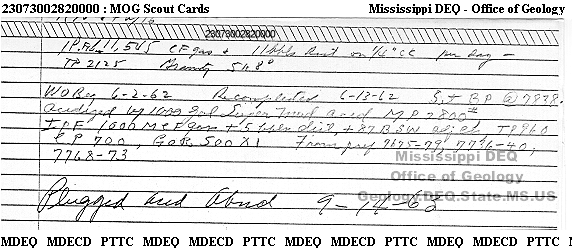 23073002820000 : MOG Scout Cards Mississippi DEQ - Office of Geology
23073002820000
I.P.F. 11,545 CF gas + 11 bbls dist on 1/4" CC per day -
TP 2125 Gravity 54.8°
WO Beg 6-2-62 Recompleted 6-13-62 Set BP @ 7898.
Acidized by 1000 gal acid MP 2800#
IPF 1000 MCF gas + 5 bbls dist + 8% BSW TP 960
CP 700, GOR 500 X1 From perf 7675-79, 7736-40,
7768-73
Mississippi DEQ
Office of Geology
Geology.DEQ.State.MS.US
Plugged and Abnd 9-14-63
MDEQ MDECD PTTC MDEQ MDECD PTTC MDEQ MDECD PTTC MDEQ MDECD PTTC M